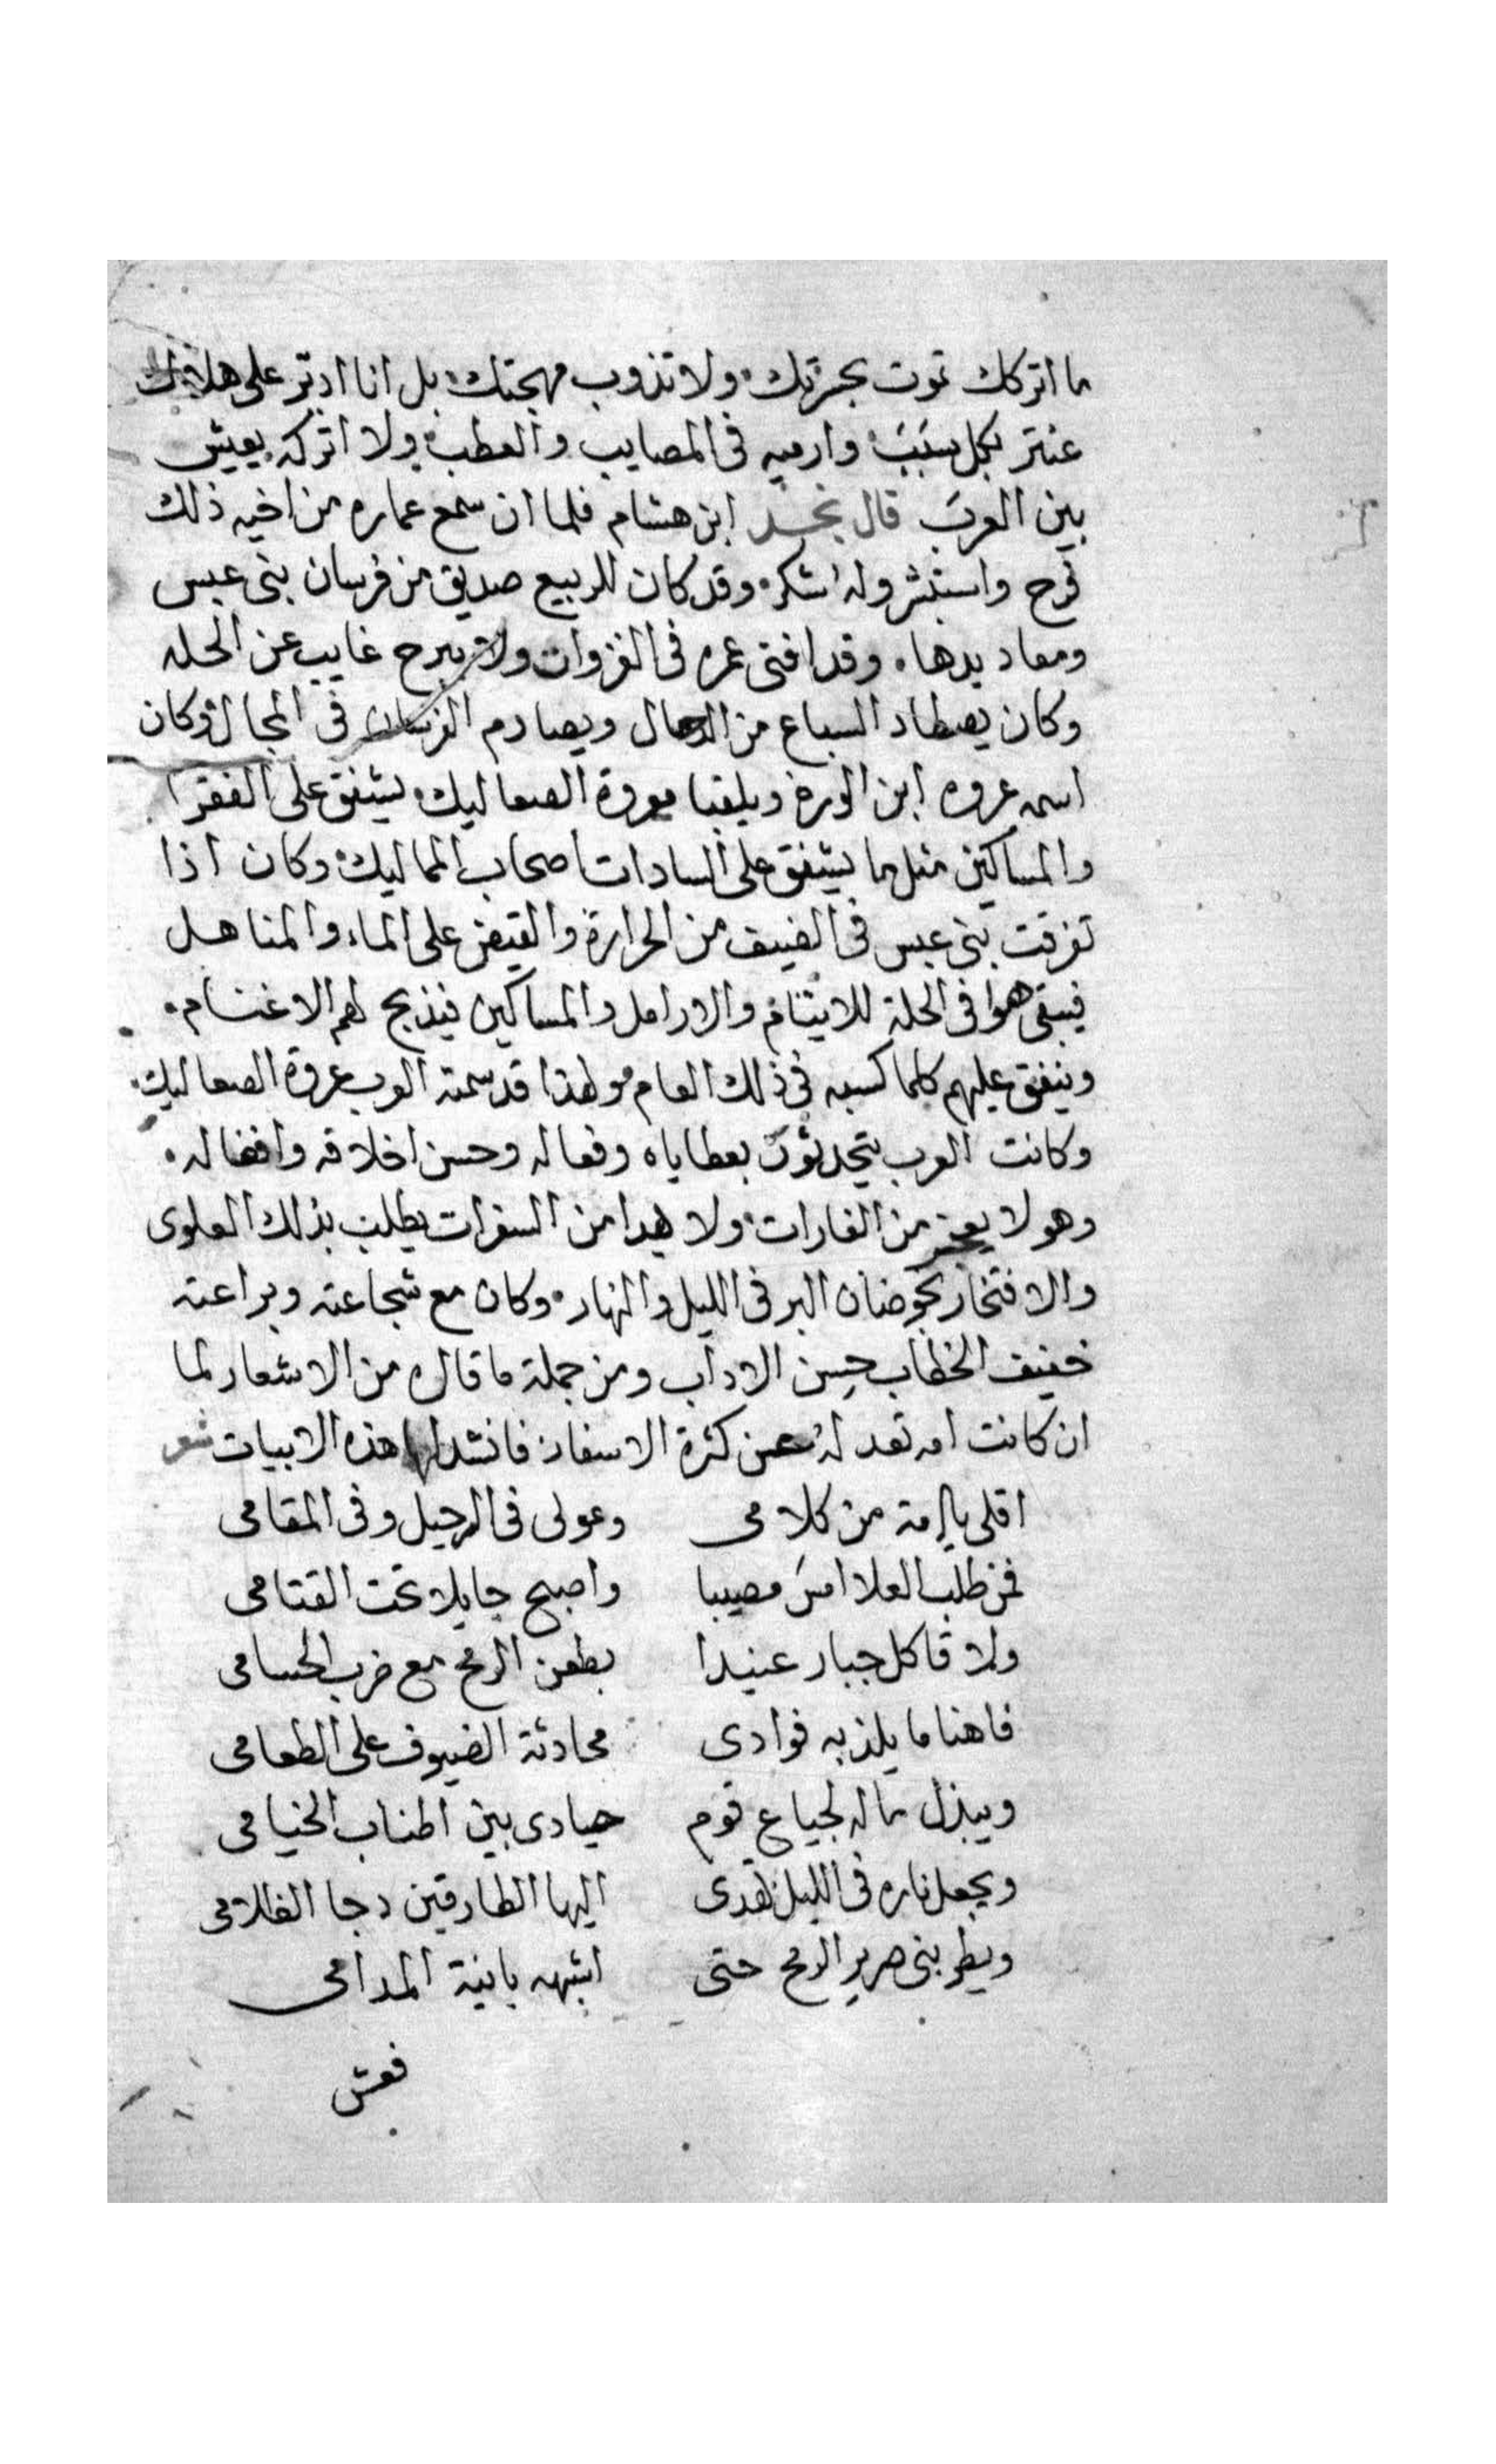 ما اتركك تموت بحسرتك ولا تذوب مهجتك بل انا ادبر على هلاك
عنتر بكل سبب وارميه فى المصايب والعطب ولا اتركه يعيش
بين العرب قال نجد ابن هشام فلما ان سمع عماره من اخيه ذلك
فرح واستبشر وله اشكر وقد كان للربيع صديق من فرسان بنى عبس
وقد افنى عمره فى الغزوات ولا يبرح غايب عن الحله
وكان يصطاد السباع من الدحال ويصادم الفرسان فى المجال وكان
اسمه عروه ابن الورد ويلقبا بعروة الصعاليك يشفق على الفقرا
والمساكين مثل ما يشفق على السادات اصحاب المماليك وكان اذا
تفرقت بنى عبس فى الضيف من الحرارة والقيض على الماء والمناهل
فيبقى هوا فى الحلة للايتام والارامل والمساكين فيذبح لهم الاغنام
وينفق عليهم كلما كسبه فى ذلك العام ولهذا قد سمته العرب عروة الصعاليك
وكانت العرب يتحدثون بعطاياه وفعاله وحسن اخلاقه وافضاله
وهو لا يعجز من الغارات ولا يهدا من السفرات يطلب بذلك العلوى
والافتخار بخوضان البر فى الليل والنهار وكان مع شجاعته وبراعته
خفيف الخطاب حسن الاداب ومن جملة ما قال من الاشعار لما
ان كانت امه تعد له عن كثرة الاسفار فانشد لها هذه الابيات شعر
اقلى يا امة من كلامى وعولى فى الرحيل وفى المقامى
فمن طلب العلا امسَ مصيبا واصبح جايلا تحت القتامى
ولا قا كل جبار عنيدا بطعن الرمح مع ضرب الحسامى
فاهنا ما يلذ به فوادى محادثة الضيوف على الطعامى
ويبذل ماله لجياع قوم حيادى بين اطناب الخيامى
ويجعل ناره فى الليل تهدى اليها الطارقين دجا الظلامى
ويطربنى صرير الرمح حتى اشبهه بانية المدامى
فعش